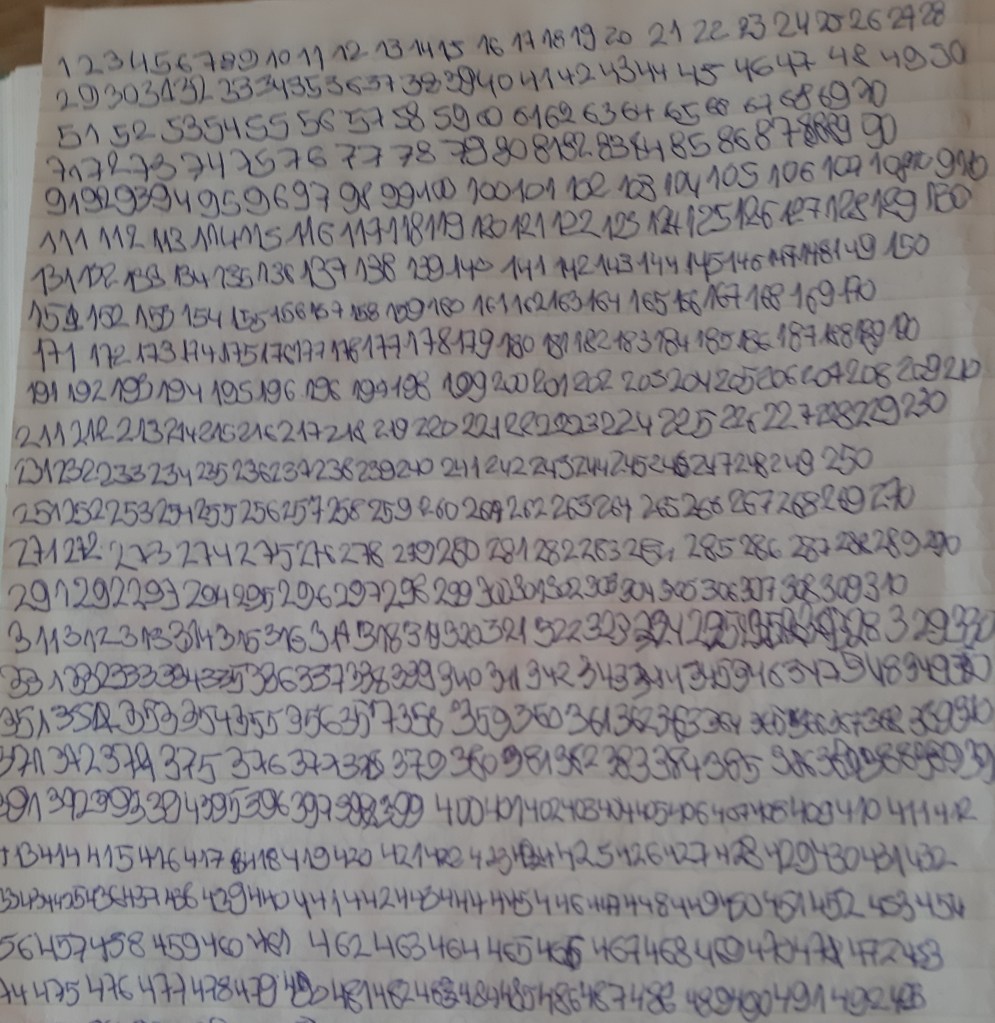 1 2 3 4 5 6 7 8 9 10 11 12 13 14 15 16 17 18 19 20 21 22 23 24 25 26 27 28
29 30 31 32 33 34 35 36 37 38 39 40 41 42 43 44 45 46 47 48 49 50
51 52 53 54 55 56 57 58 59 60 61 62 63 64 65 66 67 68 69 70
71 72 73 74 75 76 77 78 79 80 81 82 83 84 85 86 87 88 89 90
91 92 93 94 95 96 97 98 99 100 100 101 102 103 104 105 106 107 108 109 110
111 112 113 114 115 116 117 118 119 120 121 122 123 124 125 126 127 128 129 130
131 132 133 134 135 136 137 138 139 140 141 142 143 144 145 146 147 148 149 150
151 152 153 154 155 156 157 158 159 160 161 162 163 164 165 166 167 168 169 170
171 172 173 174 175 176 177 178 177 178 179 180 181 182 183 184 185 186 187 188 189 190
191 192 193 194 195 196 196 197 198 199 200 201 202 203 204 205 206 207 208 209 210
211 212 213 214 215 216 217 218 219 220 221 222 223 224 225 226 227 228 229 230
231 232 233 234 235 236 237 238 239 240 241 242 243 244 245 246 247 248 249 250
251 252 253 254 255 256 257 258 259 260 261 262 263 264 265 266 267 268 269 270
271 272 273 274 275 276 278 279 280 281 282 283 284 285 286 287 288 289 290
291 292 293 294 295 296 297 298 299 300 301 302 303 304 305 306 307 308 309 310
311 312 313 314 315 316 317 318 319 320 321 322 323 328 329 330
331 332 333 334 335 336 337 338 339 340 341 342 343 344 345 346 347 348 349 350
351 352 353 354 355 356 357 358 359 360 361 362 363 364 365 366 367 368 369 370
371 372 374 375 376 377 378 379 380 381 382 383 384 385 386
391 392 393 394 395 396 397 398 399 400 401 402 403 404 405 406 407 408 409 410 411 412
13 414 415 416 417 418 419 420 421 422 423 424 425 426 427 428 429 430 431 432
33 434 435 436 437 438 439 440 441 442 443 444 445 446 447 448 449 450 451 452 453 454
56 457 458 459 460 461 462 463 464 465 466 467 468 469 470 471 472 473
74 475 476 477 478 479 480 481 482 483 484 485 486 487 488 489 490 491 492 493